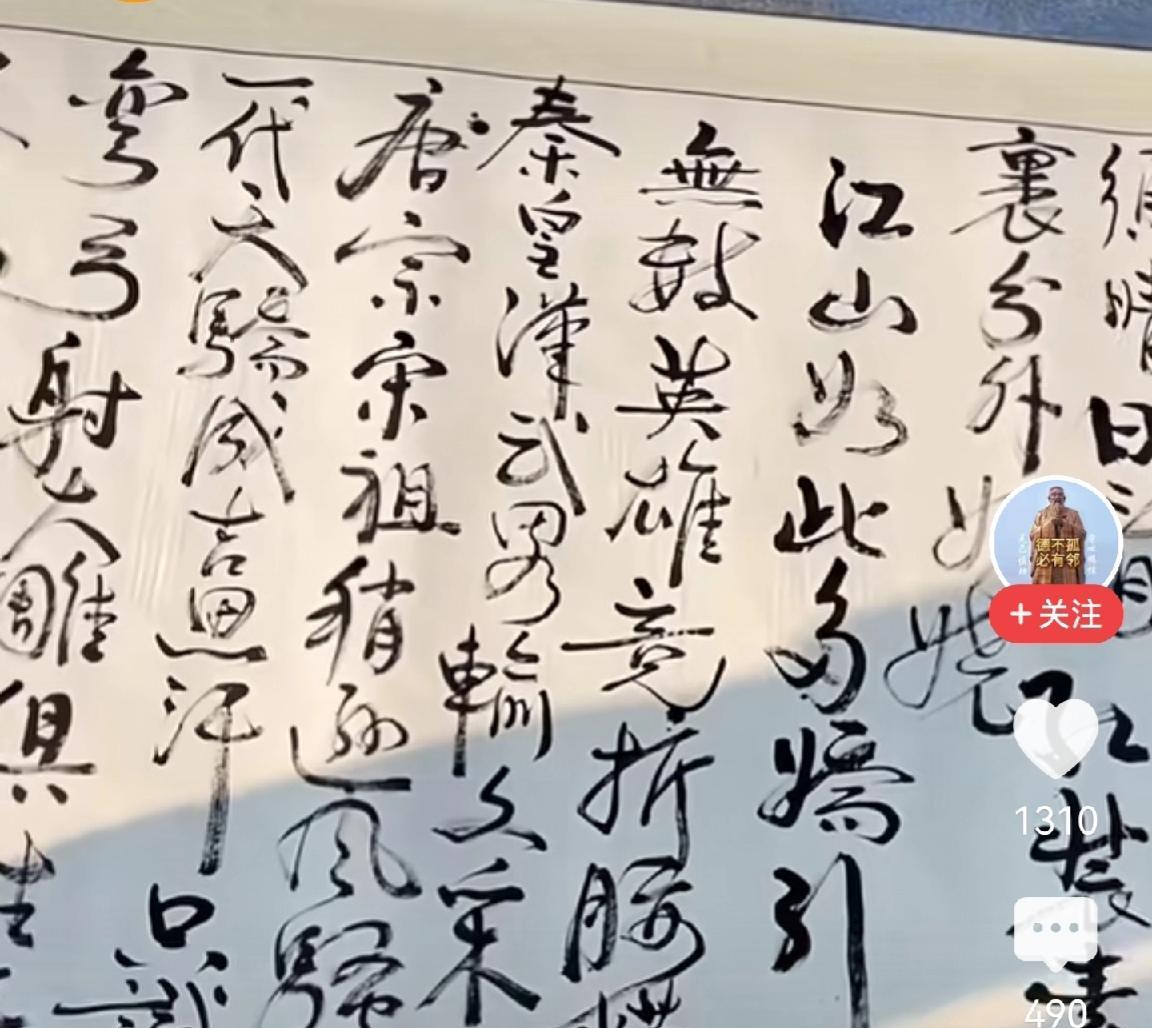 須晴日看紅裝素
裏分外妖嬈
江山如此多嬌引
無數英雄竞折腰惜
秦皇漢武畧輸文采
唐宗宋祖稍遜風騷
一代天驕成吉思汗只識
彎弓射大雕俱往
德不孤
必有邻
+关注
1310
490